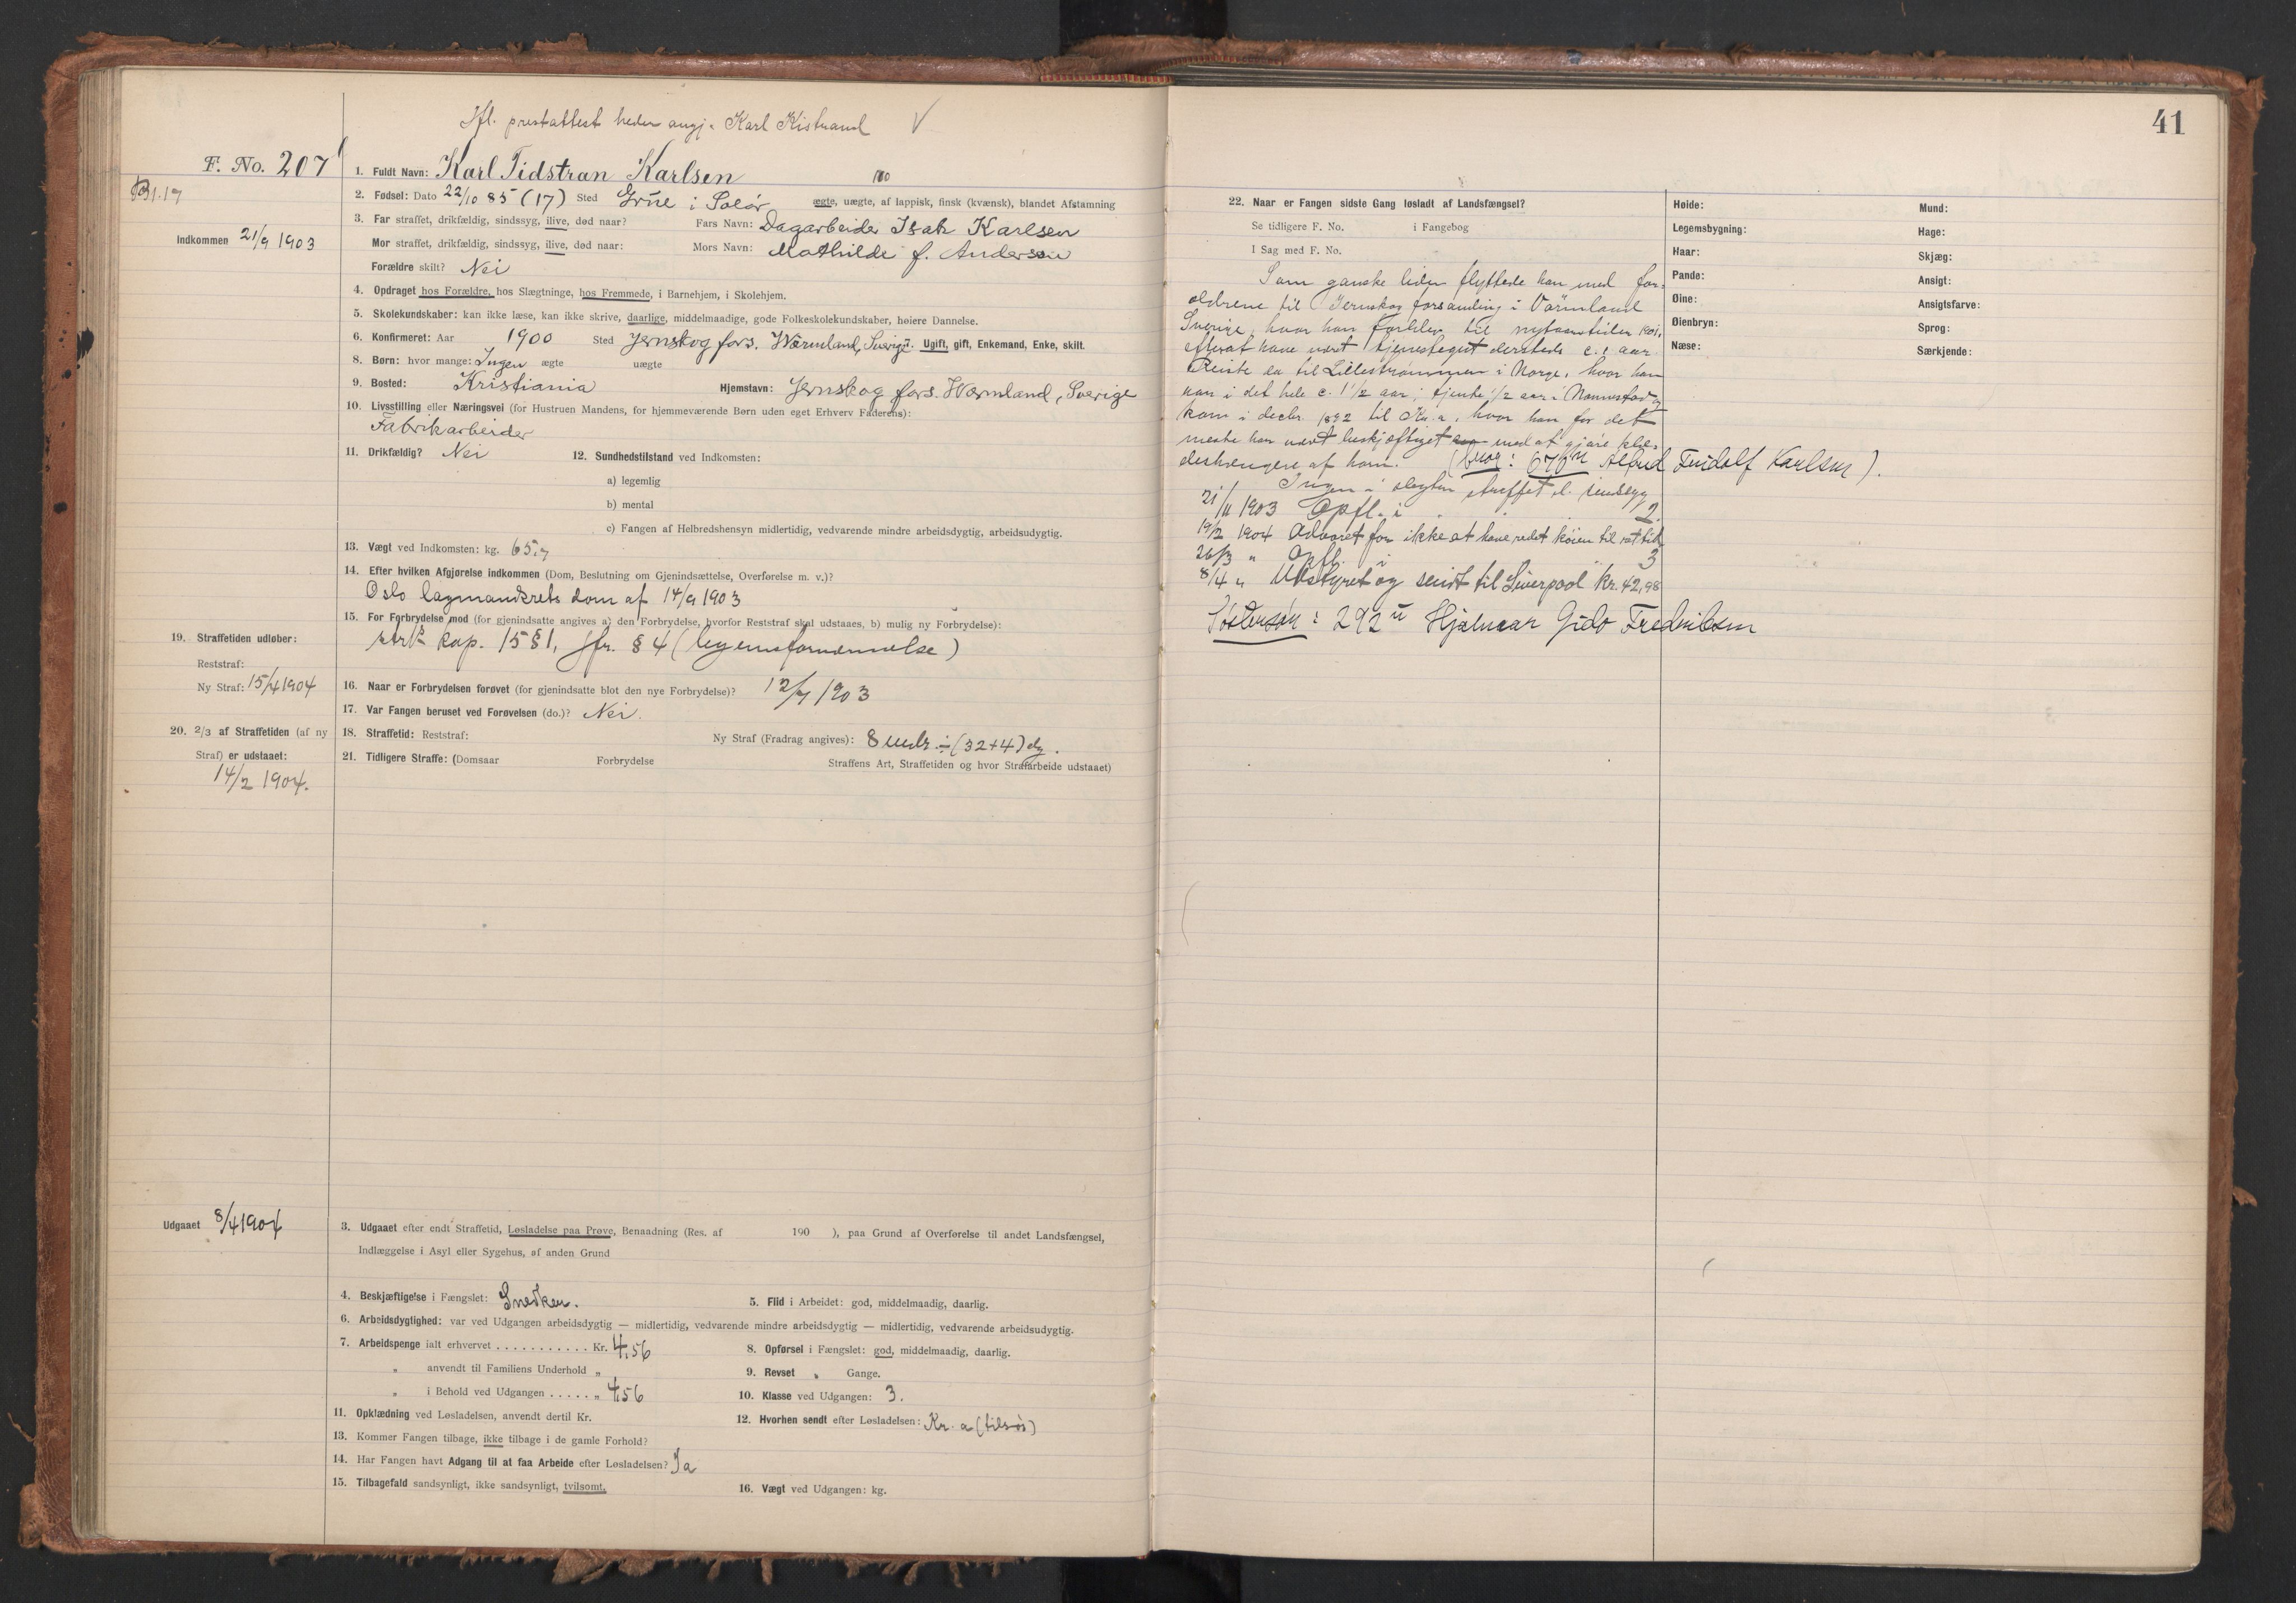 Ifl. prestattest heder angj. Karl Kistrand V
F. No. 207
1. Fuldt Navn: Karl Tidstran Karlsen
31.17
2. Fødsel: Dato 22/10 85 (17) Sted Grue i Solør ægte, uægte, af lappisk, finsk (kvænsk), blandet Afstamning
Indkommen 21/9 1903
3. Far straffet, drikfældig, sindssyg, ilive, død naar? Fars Navn: Dagarbeider Isak Karlsen
Mor straffet, drikfældig, sindssyg, ilive, død naar: Mors Navn: Mathilde f. Anderson
Forældre skilt? Nei
4. Opdraget hos Forældre, hos Slægtninge, hos Fremmede, i Barnehjem, i Skolehjem.
5. Skolekundskaber: kan ikke læse, kan ikke skrive, daarlige, middelmaadige, gode Folkeskolekundskaber, høiere Dannelse.
6. Konfirmeret: Aar 1900 Sted Jernskog fors. Wärmland, Sverige. Ugift, gift, Enkemand, Enke, skilt.
8. Børn: hvor mange: Ingen ægte uægte
9. Bosted: Kristiania Hjemstavn: Jernskog fors. Wermland, Sverige
10. Livsstilling eller Næringsvei (for Hustruen Mandens, for hjemmeværende Børn uden eget Erhverv Faderens):
Fabrikarbeider
11. Drikfældig? Nei 12. Sundhedstilstand ved Indkomsten:
a) legemlig
b) mental
c) Fangen af Helbredshensyn midlertidig, vedvarende mindre arbeidsdygtig, arbeidsudygtig.
13. Vægt ved Indkomsten: kg. 65,7
14. Efter hvilken Afgjørelse indkommen (Dom, Beslutning om Gjenindsættelse, Overførelse m. v.)?
Oslo lagmandsrets dom af 14/9 1903
15. For Forbrydelse mod (for gjenindsatte angives a) den Forbrydelse, hvorfor Reststraf skal udstaaes, b) mulig ny Forbrydelse):
strfl kap. 15 § 1, jfr. § 4 (legemsfornærmelse)
19. Straffetiden udløber:
Reststraf:
Ny Straf: 15/4 1904
16. Naar er Forbrydelsen forøvet (for gjenindsatte blot den nye Forbrydelse)? 12/7 1903
17. Var Fangen beruset ved Forøvelsen (do.)? Nei.
20. 2/3 af Straffetiden (af ny Straf) er udstaaet:
14/2 1904.
18. Straffetid: Reststraf: Ny Straf (Fradrag angives): 8 mdr. ÷ (32+4) dg.
21. Tidligere Straffe: (Domsaar Forbrydelse Straffens Art, Straffetiden og hvor Strafarbeide udstaaet)
Udgaaet 8/4 1904
3. Udgaaet efter endt Straffetid, Løsladelse paa Prøve, Benaadning (Res. af 190 ), paa Grund af Overførelse til andet Landsfængsel,
Indlæggelse i Asyl eller Sygehus, of anden Grund
4. Beskjæftigelse i Fængslet: Snedker. 5. Flid i Arbeidet: god, middelmaadig, daarlig.
6. Arbeidsdygtighed: var ved Udgangen arbeidsdygtig — midlertidig, vedvarende mindre arbeidsdygtig — midlertidig, vedvarende arbeidsudygtig.
7. Arbeidspenge ialt erhvervet ........... Kr. 4,56 8. Opførsel i Fængslet: god, middelmaadig, daarlig.
„ anvendt til Familiens Underhold „ 9. Revset „ Gange.
„ i Behold ved Udgangen ..... „ 4,56 10. Klasse ved Udgangen: 3.
11. Opklædning ved Løsladelsen, anvendt dertil Kr. 12. Hvorhen sendt efter Løsladelsen: Kr. a (tilsøs)
13. Kommer Fangen tilbage, ikke tilbage i de gamle Forhold?
14. Har Fangen havt Adgang til at faa Arbeide efter Løsladelsen? Ja
15. Tilbagefald sandsynligt, ikke sandsynligt, tvilsomt. 16. Vægt ved Udgangen: kg.
41
22. Naar er Fangen sidste Gang løsladt af Landsfængsel?
Se tidligere F. No. i Fangebog
I Sag med F. No.
Høide:
Legemsbygning:
Haar:
Pande:
Øine:
Øienbryn:
Næse:
Mund:
Hage:
Skjæg:
Ansigt:
Ansigtsfarve:
Sprog:
Særkjende:
Som ganske liden flyttede han med for-
ældrene til Jernskog forsamling i Värmland
Sverige, hvor han forblev til nytaarstider 1901,
efterat have været tjenestegut dersteds c. 1 aar.
Reiste da til Lillestrømmen i Norge, hvor han
var i det hele c. 1 1/2 aar, tjente 1/2 aar i Nannestad og
kom i decbr. 1892 til Kr.a, hvor han for det
meste har været beskjæftiget med at gjøre klæ-
deshængere af horn. (bror: 670 II Alfred Fridolf Karlsen).
Ingen i slegten straffet el. sindssyg
21/11 1903 Opfl. i . . . 2.
19/2 1904 Advaret for ikke at have redet køien til ret tid
26/3 „ Opfl. i „ 3
8/4 „ Udstyret og sendt til Liverpool kr. 42,98
Søstersøn: 292 II Hjalmar Gido Fredriksen